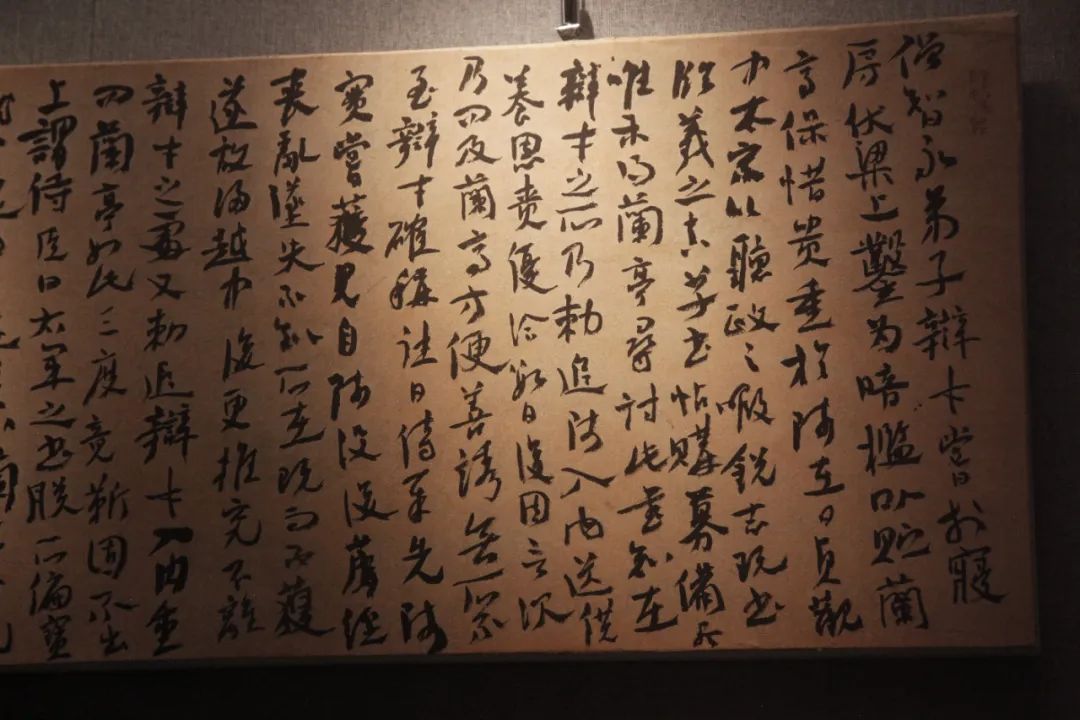 僧智永弟子辯才嘗於寢
房伏梁上鑿為暗檻以貯蘭
亭保惜貴重於師在日貞觀
中太宗以聽政之暇銳志玩書
臨羲之真草書帖購募備尽
唯未得蘭亭尋討此書知在
辯才之所乃勅追師入內送供
養恩賚優洽數日後因言次
乃問及蘭亭方便善誘無所不
至辯才確稱往日侍奉先師
實嘗獲見自師没後薦經
喪亂墜失不知所在既而不獲
遂放歸越中後更推究不離
辯才之處又勅追辯才入內重
問蘭亭如此三度竟靳固不出
上謂侍臣曰右軍之書朕所偏寶